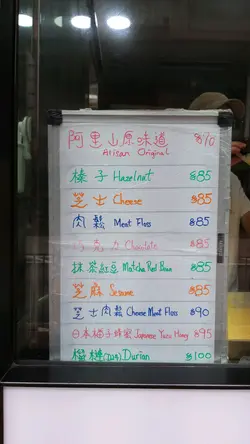 阿里山原味道 $70
Arisan Original
榛子 Hazelnut $85
芝士 Cheese $85
肉鬆 Meat Floss $85
巧克力 Chocolate $85
抹茶紅豆 Matcha Red Bean $85
芝麻 Sesame $85
芝士肉鬆 Cheese Meat Floss $90
日本柚子蜂蜜 Japanese Yuzu Honey $95
榴槤 Durian $100